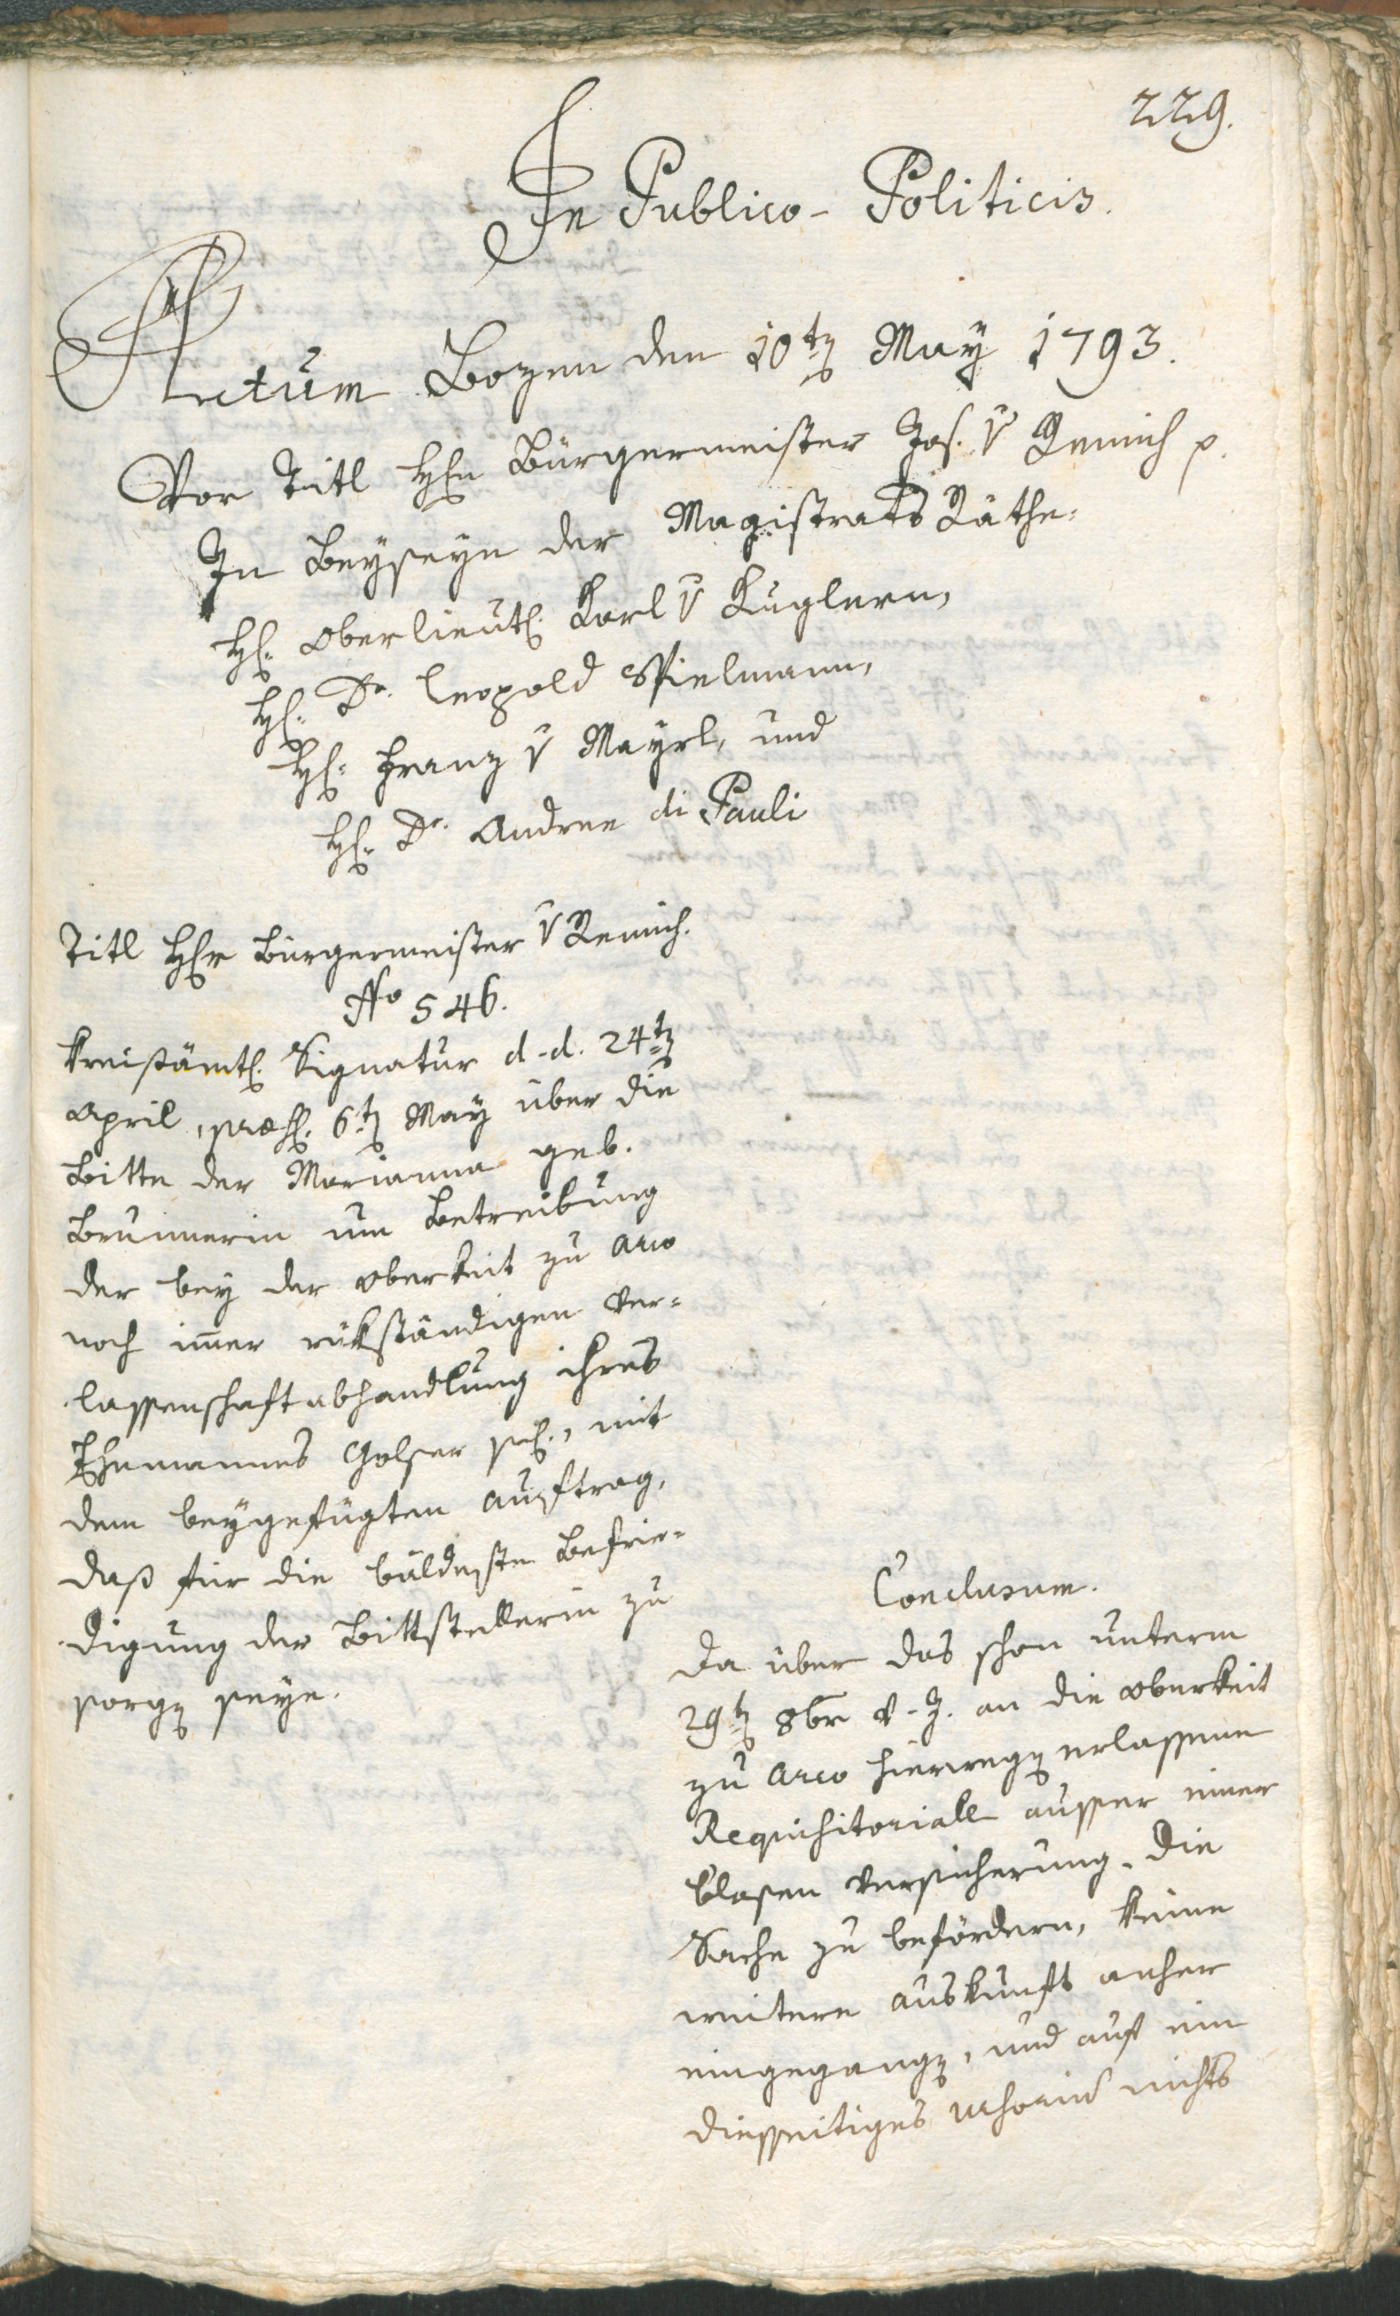 229.
In Publico-Politicis.
Actum Bozen den 10ten May 1793.
Vor Titl Hℓn Bürgermeister Jos. v Remich p.
In Beyseyn der Magistrats Räthe:
H. Oberlieut. Karl v Kuglern,
H. Dr. Leopold Spielmann,
H. Franz v Mayrl, und
H. Dr. Andree di Pauli
Titl Hℓr Bürgermeister v Remich.
No 546.
Kreisämtl. Signatur d-d. 24ten
April, præs. 6ten May über die
Bitte der Marianna geb.
Brunnerin um Betreibung
der bey der Oberkeit zu Arco
noch im̅er rükständigen Ver=
lassenschaftabhandlung ihres
Ehemannes Golser sel., mit
dem beygefügten Auftrag,
daß für die bäldeste Befrie=
digung der Bittstellerin zu
sorgen seye.
Conclusum.
Da über das schon unterm
29ten 8br v-J. an die Oberkeit
zu Arco hierwegen erlassene
Requisitoriale ausser einer
blosen Versicherung, die
Sache zu befördern, keine
weitere Auskunft anher
eingegangen, und auf ein
diesseitiges nichts